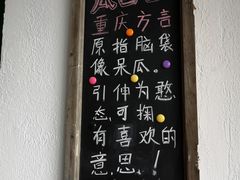 重庆方言
原指脑袋
像呆瓜。
引伸为憨
态可掬
有喜欢的
意思！